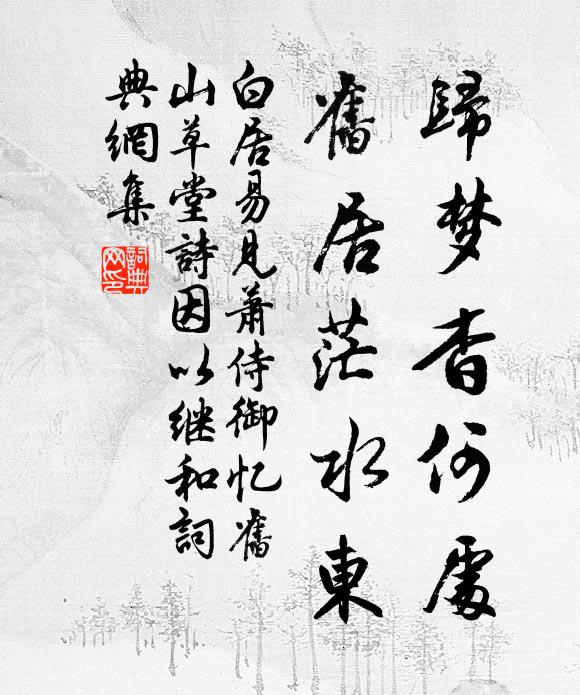 歸梦杳何處
舊居茫水東
白居易見蕭侍御忆舊
山草堂詩因以继和詞
典網集
詞典网印